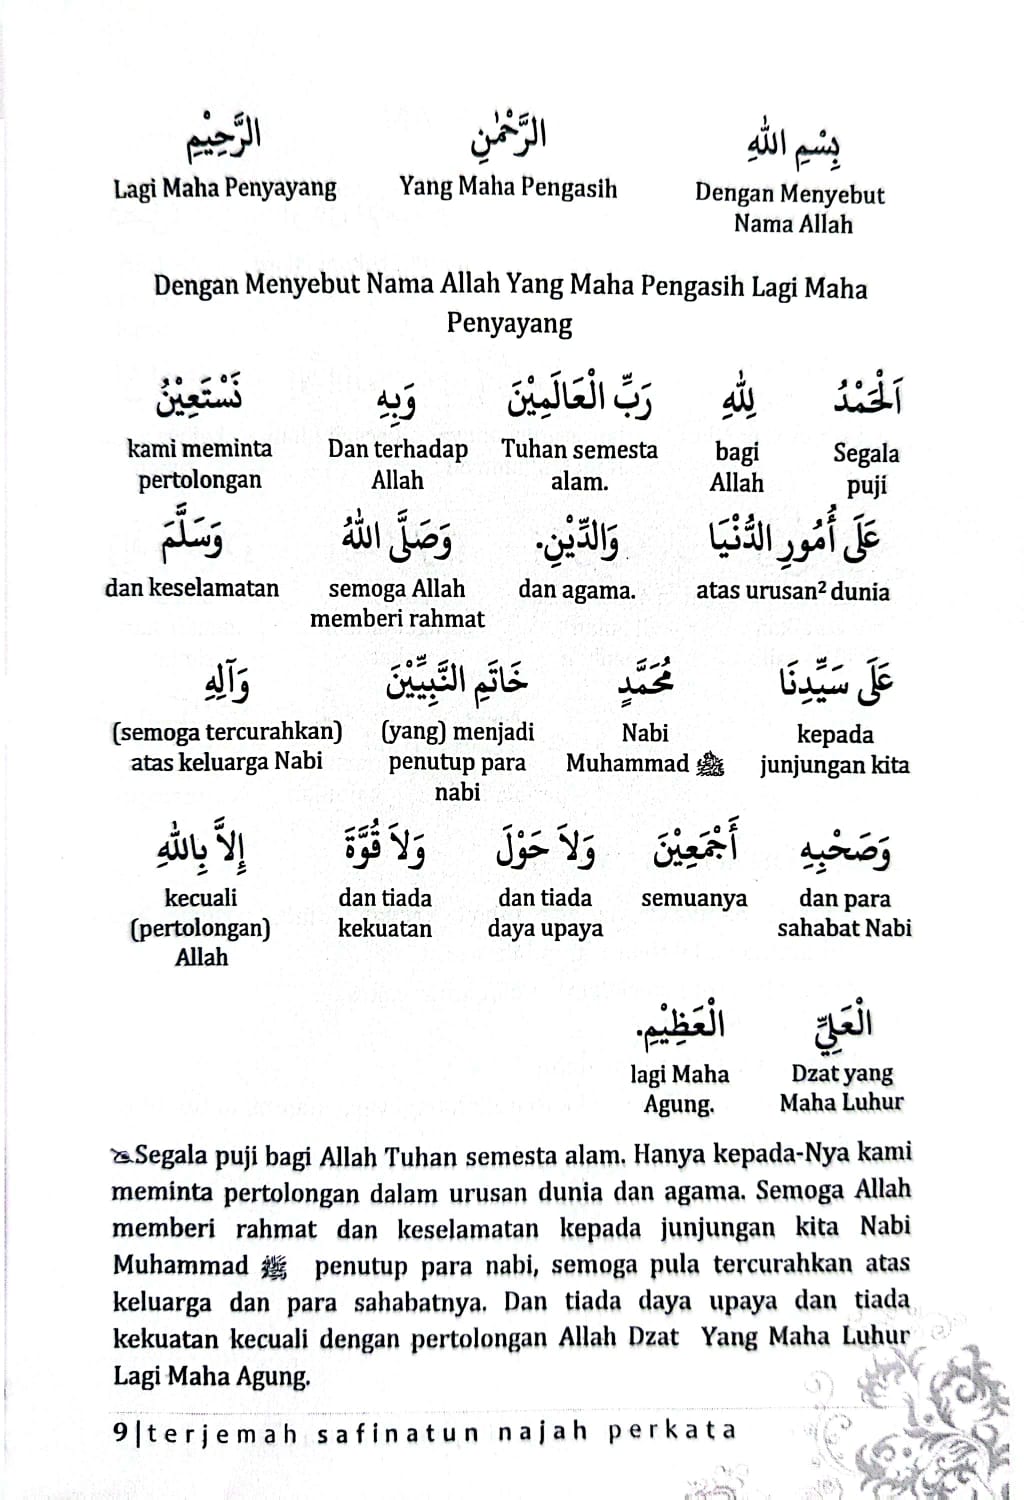 بِسْمِ اللهِ الرَّحْمٰنِ الرَّحِيْمِ
Dengan Menyebut Yang Maha Pengasih Lagi Maha Penyayang
Nama Allah
Dengan Menyebut Nama Allah Yang Maha Pengasih Lagi Maha
Penyayang
اَلْحَمْدُ لِلّٰهِ رَبِّ الْعَالَمِيْنَ وَبِهِ نَسْتَعِيْنُ
Segala bagi Tuhan semesta Dan terhadap kami meminta
puji Allah alam. Allah pertolongan
عَلَى أُمُورِ الدُّنْيَا وَالدِّيْنِ. وَصَلَّى اللهُ وَسَلَّمَ
atas urusan² dunia dan agama. semoga Allah dan keselamatan
memberi rahmat
عَلَى سَيِّدِنَا مُحَمَّدٍ خَاتَمِ النَّبِيِّيْنَ وَآلِهِ
kepada Nabi (yang) menjadi (semoga tercurahkan)
junjungan kita Muhammad ﷺ penutup para atas keluarga Nabi
nabi
وَصَحْبِهِ أَجْمَعِيْنَ وَلاَ حَوْلَ وَلاَ قُوَّةَ إِلاَّ بِاللهِ
dan para semuanya dan tiada dan tiada kecuali
sahabat Nabi daya upaya kekuatan (pertolongan)
Allah
الْعَلِيِّ الْعَظِيْمِ.
Dzat yang lagi Maha
Maha Luhur Agung.
Segala puji bagi Allah Tuhan semesta alam. Hanya kepada-Nya kami
meminta pertolongan dalam urusan dunia dan agama. Semoga Allah
memberi rahmat dan keselamatan kepada junjungan kita Nabi
Muhammad ﷺ penutup para nabi, semoga pula tercurahkan atas
keluarga dan para sahabatnya. Dan tiada daya upaya dan tiada
kekuatan kecuali dengan pertolongan Allah Dzat Yang Maha Luhur
Lagi Maha Agung.
9|terjemah safinatun najah perkata